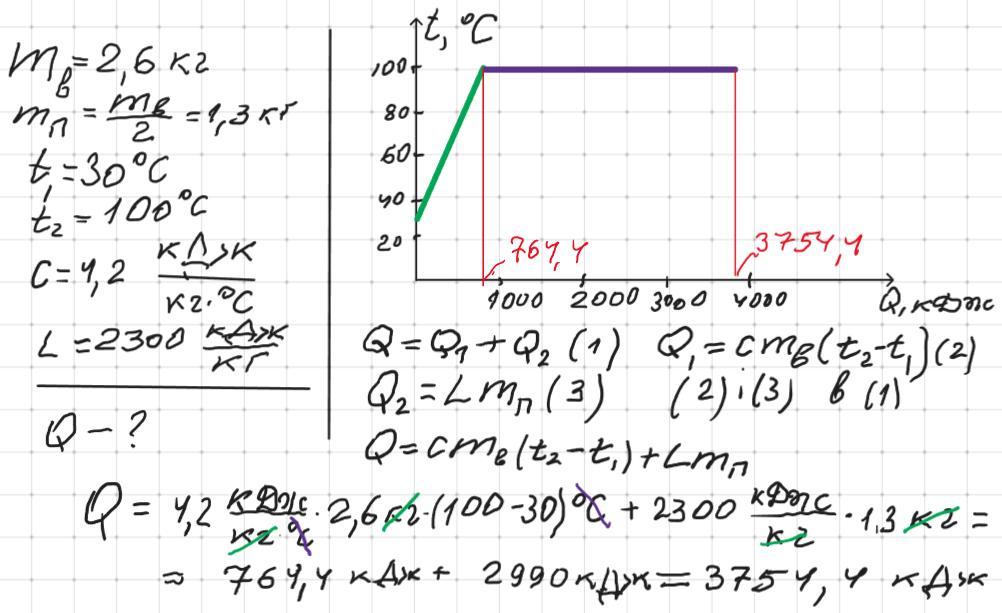 mв = 2,6 кг
mп = mв/2 = 1,3 кг
t₁ = 30°C
t₂ = 100°C
C = 4,2 кДж/кг·°C
L = 2300 кДж/кг
Q – ?
t, °C
100
80
60
40
20
764,4
3754,4
1000 2000 3000 4000 Q, кДж
Q = Q₁ + Q₂ (1) Q₁ = cmв(t₂ – t₁) (2)
Q₂ = Lmп (3) (2) і (3) в (1)
Q = cmв(t₂ – t₁) + Lmп
Q = 4,2 кДж/кг·°C · 2,6 кг · (100 – 30)°C + 2300 кДж/кг · 1,3 кг =
≈ 764,4 кДж + 2990 кДж = 3754,4 кДж